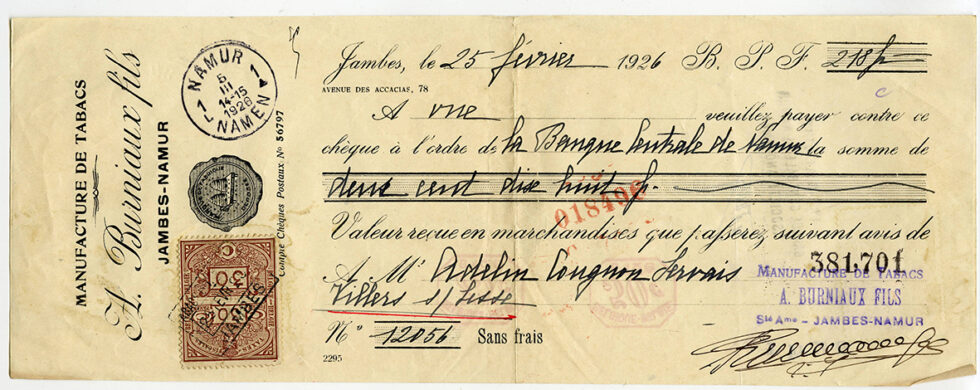 MANUFACTURE DE TABACS
A. Burniaux fils
JAMBES-NAMUR
NAMUR
5
III
14-15
1926
NAMEN
1 1
Compte Chèques Postaux No 56797
Jambes, le 25 février 1926 B. P. F. 218 f
AVENUE DES ACCACIAS, 78
A vue veuillez payer contre ce
chèque à l'ordre de la Banque Centrale de Namur la somme de
deux cent dix huit f.
018496
Valeur reçue en marchandises que passerez suivant avis de
A Mr Adelin Cougnon Servais
Villers s/ Lesse
381,701
MANUFACTURE DE TABACS
A. BURNIAUX FILS
Sté Ame - JAMBES-NAMUR
No 12056 Sans frais
2295
JAMBES